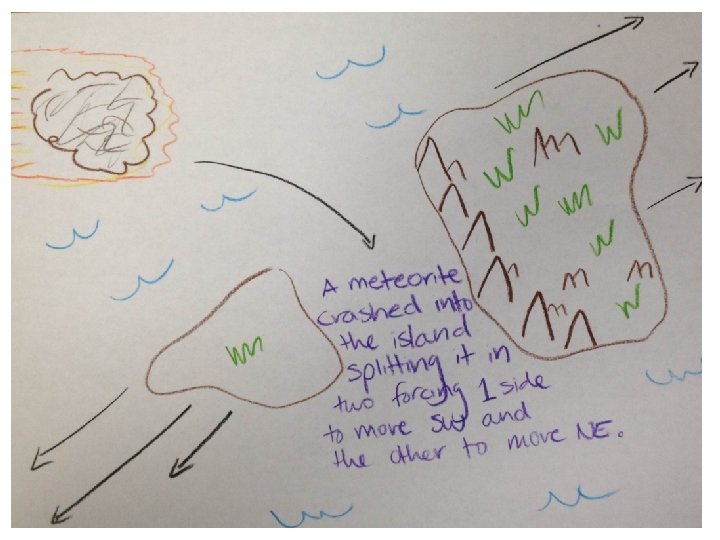 A meteorite
crashed into
the island
splitting it in
two forcing 1 side
to move SW and
the other to move NE.